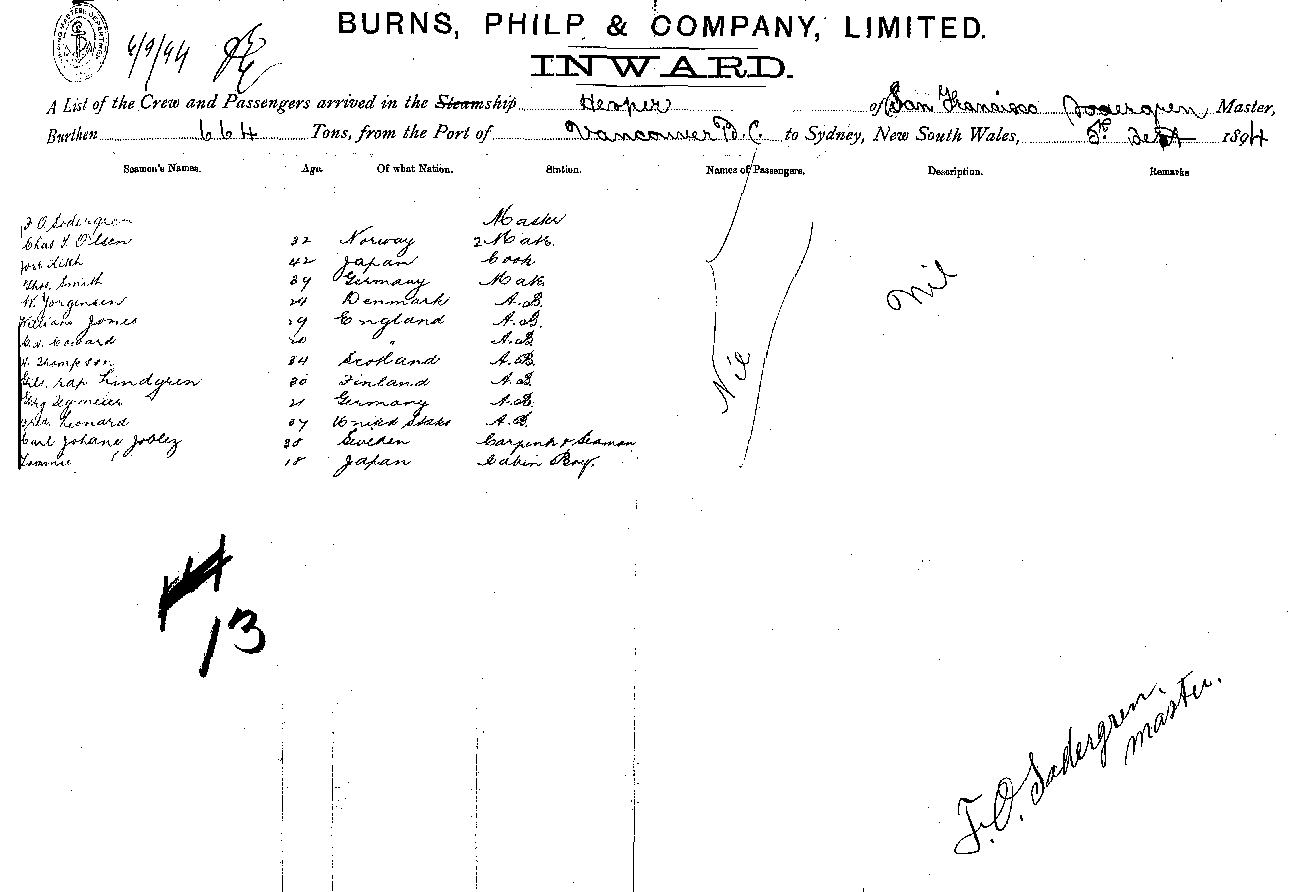 BURNS, PHILP & COMPANY, LIMITED.
6/9/94
INWARD.
A List of the Crew and Passengers arrived in the Steamship Hesper of San Francisco Sodergren Master,
Burthen 664 Tons, from the Port of Vancouver B.C. to Sydney, New South Wales, 5th Sept 1894
Seamen's Names. Age. Of what Nation. Station. Names of Passengers. Description. Remarks
F O Sodergren Master
Chas F. Olsen 32 Norway 2 Mate.
42 Japan Cook
Thos. Smith 39 Germany Mate
W. Jorgensen 24 Denmark A.B.
William Jones 29 England A.B.
Coward 20 " A.B.
Thompson 34 Scotland A.B.
Lindgren 30 Finland A.B.
21 Germany A.B.
Leonard 37 United States A.B.
Carl Johane 38 Sweden Carpenter & Seaman
Tommie 18 Japan Cabin Boy.
Nil
Nil
13
F.O. Sodergren.
master.